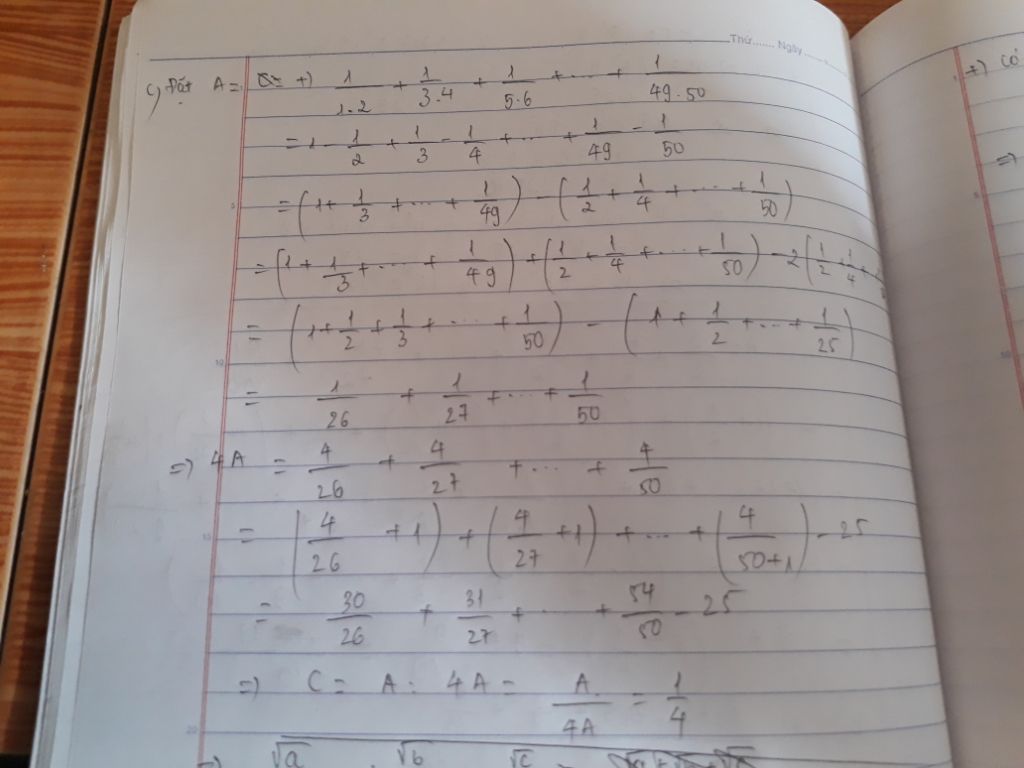 Thứ...... Ngày......
c) Đặt A = +) 1/1.2 + 1/3.4 + 1/5.6 + ... + 1/49.50
= 1 - 1/2 + 1/3 - 1/4 + ... + 1/49 - 1/50
= (1 + 1/3 + ... + 1/49) - (1/2 + 1/4 + ... + 1/50)
= (1 + 1/3 + ... + 1/49) + (1/2 + 1/4 + ... + 1/50) - 2(1/2 + 1/4 +
= (1 + 1/2 + 1/3 + ... + 1/50) - (1 + 1/2 + ... + 1/25)
= 1/26 + 1/27 + ... + 1/50
=) 4A = 4/26 + 4/27 + ... + 4/50
= (4/26 + 1) + (4/27 + 1) + ... + (4/50+1) - 25
= 30/26 + 31/27 + ... + 54/50 - 25
=) C = A : 4A = A/4A = 1/4
=) √a √b √c
+) có
=)
5
10
15
20